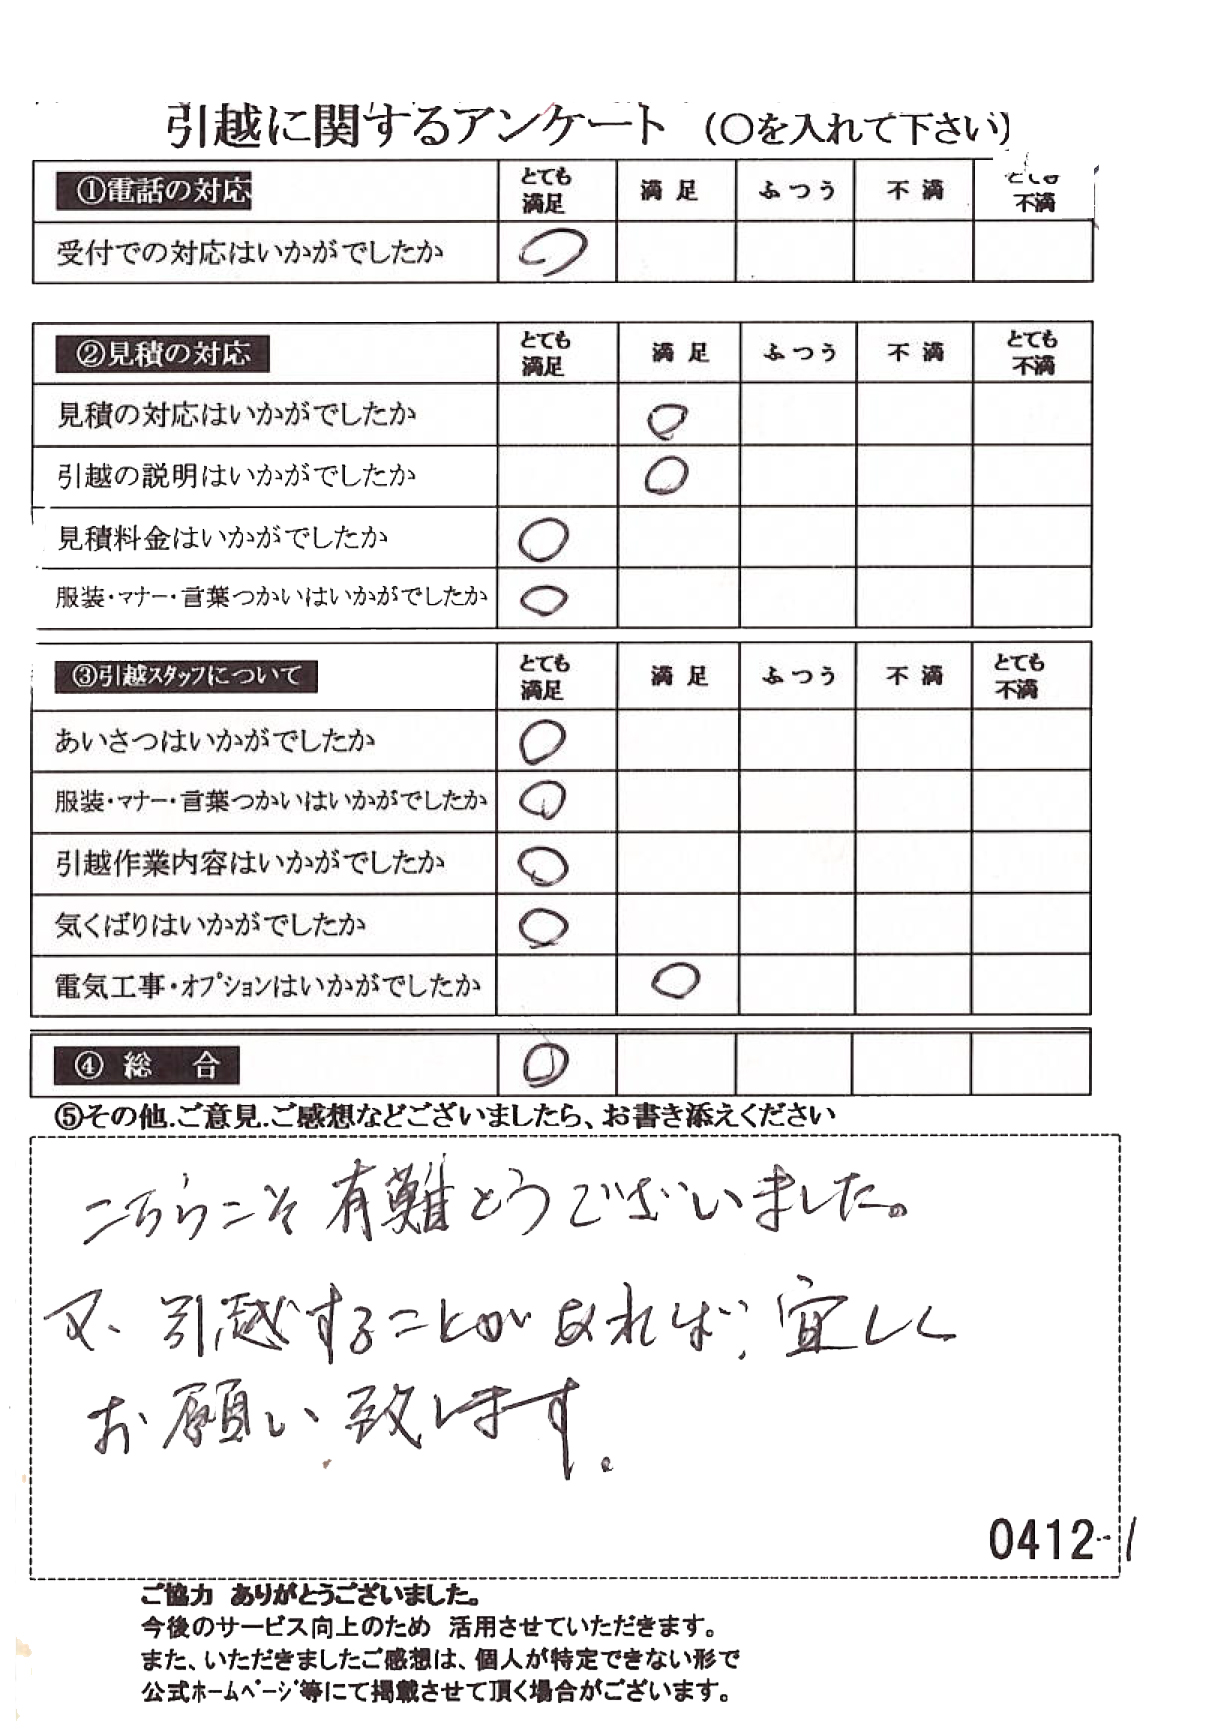 引越に関するアンケート (〇を入れて下さい)
①電話の対応 とても満足 満足 ふつう 不満 とても不満
受付での対応はいかがでしたか ○
②見積の対応 とても満足 満足 ふつう 不満 とても不満
見積の対応はいかがでしたか ○
引越の説明はいかがでしたか ○
見積料金はいかがでしたか ○
服装・マナー・言葉つかいはいかがでしたか ○
③引越スタッフについて とても満足 満足 ふつう 不満 とても不満
あいさつはいかがでしたか ○
服装・マナー・言葉つかいはいかがでしたか ○
引越作業内容はいかがでしたか ○
気くばりはいかがでしたか ○
電気工事・オプションはいかがでしたか ○
④ 総 合 ○
⑤その他.ご意見.ご感想などございましたら、お書き添えください
こちらこそ有難とうございました。
又、引越することがあれば、宜しく
お願い致します。
0412-1
ご協力 ありがとうございました。
今後のサービス向上のため 活用させていただきます。
また、いただきましたご感想は、個人が特定できない形で
公式ホームページ等にて掲載させて頂く場合がございます。